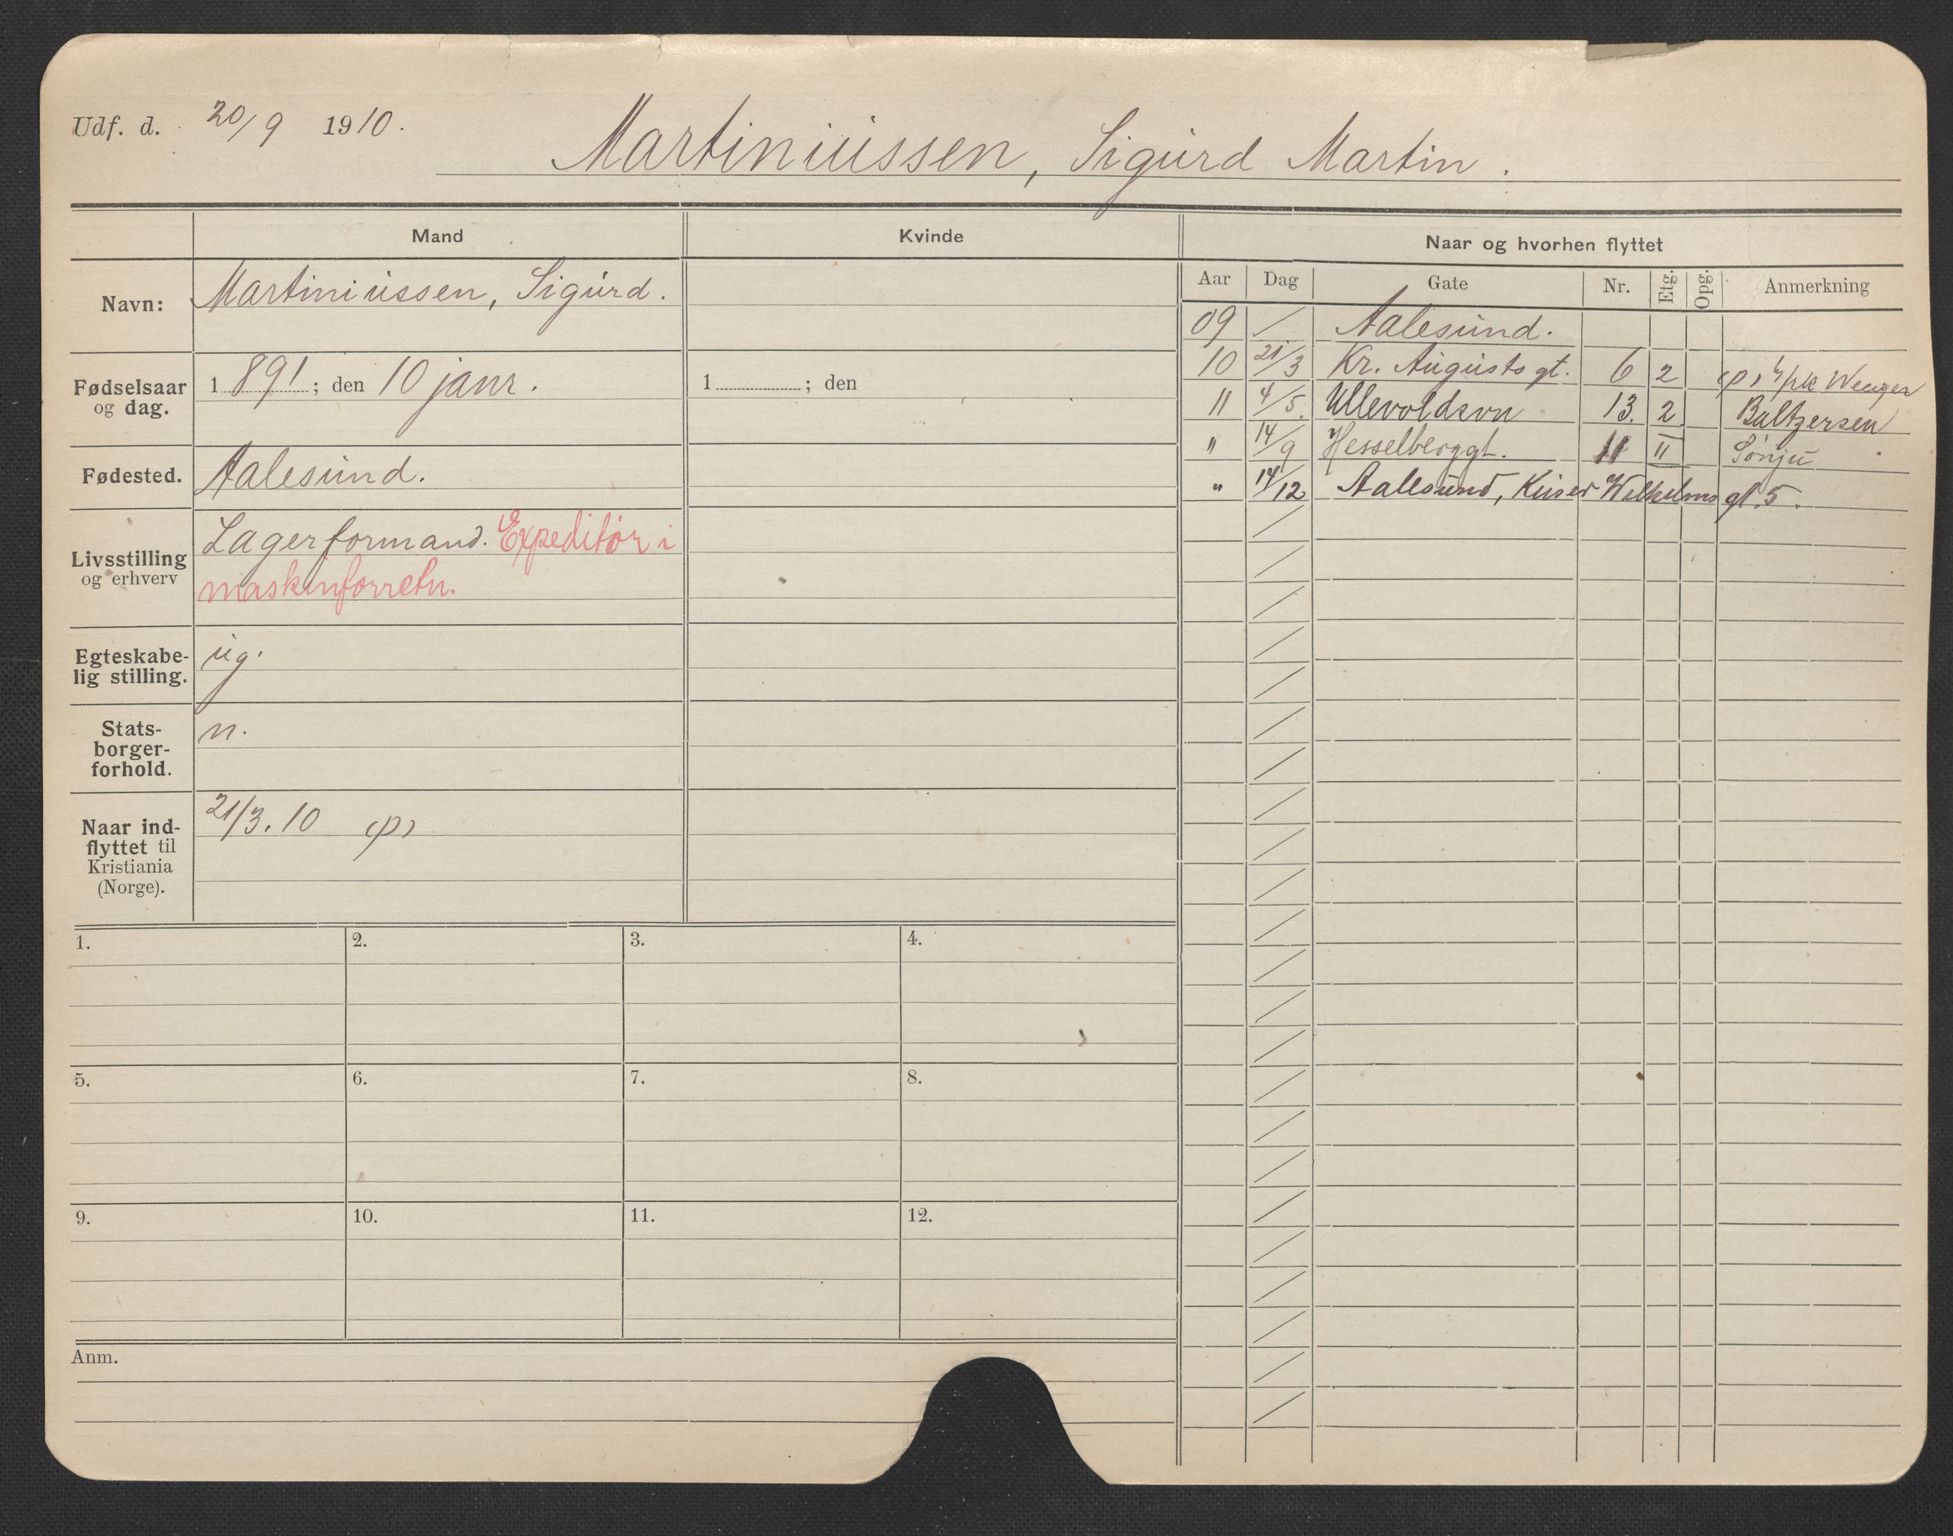 Udf. d. 20/9 1910.
Martiniussen, Sigurd Martin.
Mand
Kvinde
Navn: Martiniussen, Sigurd.
Fødselsaar og dag. 1891; den 10 janr. 1 ; den
Fødested. Aalesund.
Livsstilling og erhverv
Lagerformand. Expeditør i
maskinforretn.
Egteskabe-
lig stilling. ug.
Stats-
borger-
forhold. n.
Naar ind-
flyttet til
Kristiania
(Norge). 21/3.10 (p)
1. 2. 3. 4.
5. 6. 7. 8.
9. 10. 11. 12.
Anm.
Naar og hvorhen flyttet
Aar Dag Gate Nr. Etg. Opg. Anmerkning
09 / Aalesund.
10 21/3 Kr. Augusts gt. 6 2 (p) Wenger
11 4/5. Ullevoldsvn 13. 2 Baltzersen
" 14/9 Hesselberggt. 11 II
" 14/12 Aalesund, Keiser Wilhelms gt. 5.